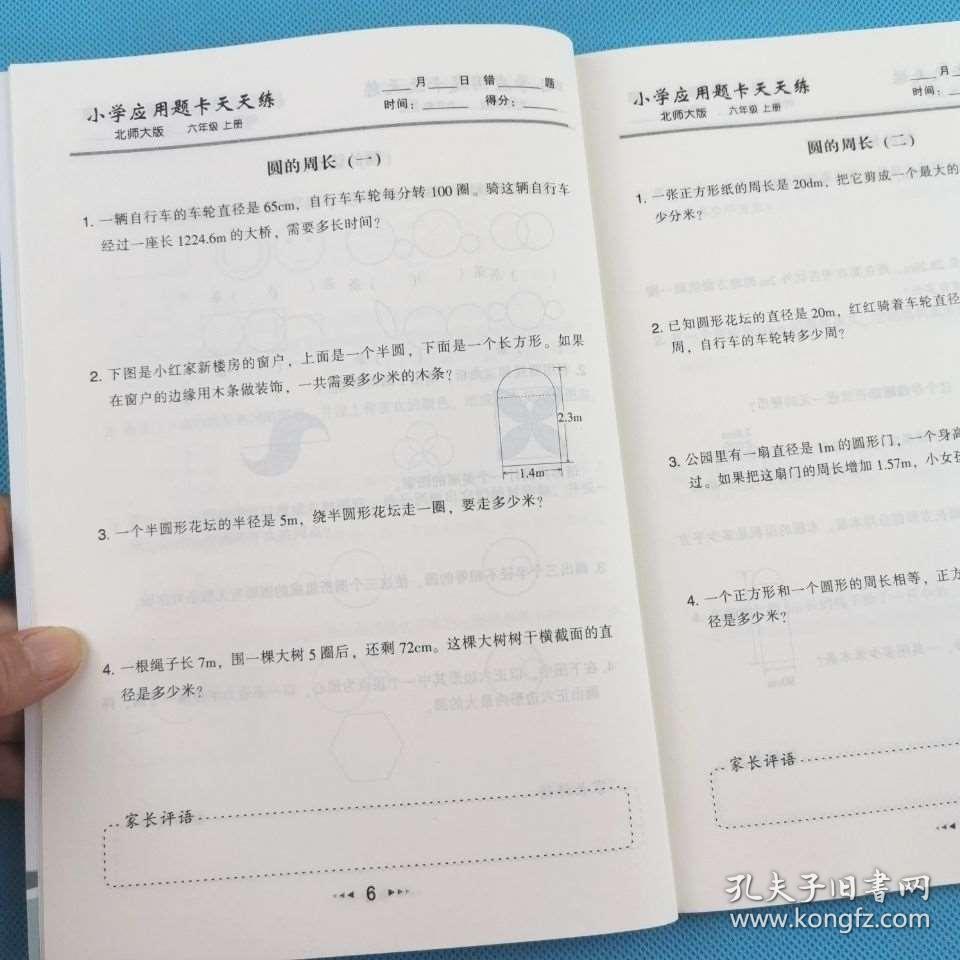 小学应用题卡天天练
北师大版 六年级 上册
____月____日 错____题
时间：______ 得分：______
圆的周长（一）
1. 一辆自行车的车轮直径是65cm，自行车车轮每分转100圈。骑这辆自行车
经过一座长1224.6m的大桥，需要多长时间？
2. 下图是小红家新楼房的窗户，上面是一个半圆，下面是一个长方形。如果
在窗户的边缘用木条做装饰，一共需要多少米的木条？
2.3m
1.4m
3. 一个半圆形花坛的半径是5m，绕半圆形花坛走一圈，要走多少米？
4. 一根绳子长7m，围一棵大树5圈后，还剩72cm。这棵大树树干横截面的直
径是多少米？
家长评语
6
小学应用题卡天天练
北师大版 六年级 上册
____月
时间：
圆的周长（二）
1. 一张正方形纸的周长是20dm，把它剪成一个最大的
少分米？
2. 已知圆形花坛的直径是20m，红红骑着车轮直径
周，自行车的车轮转多少周？
3. 公园里有一扇直径是1m的圆形门，一个身高
过。如果把这扇门的周长增加1.57m，小女孩
4. 一个正方形和一个圆形的周长相等，正方
径是多少米？
家长评语
孔夫子旧书网
www.kongfz.com